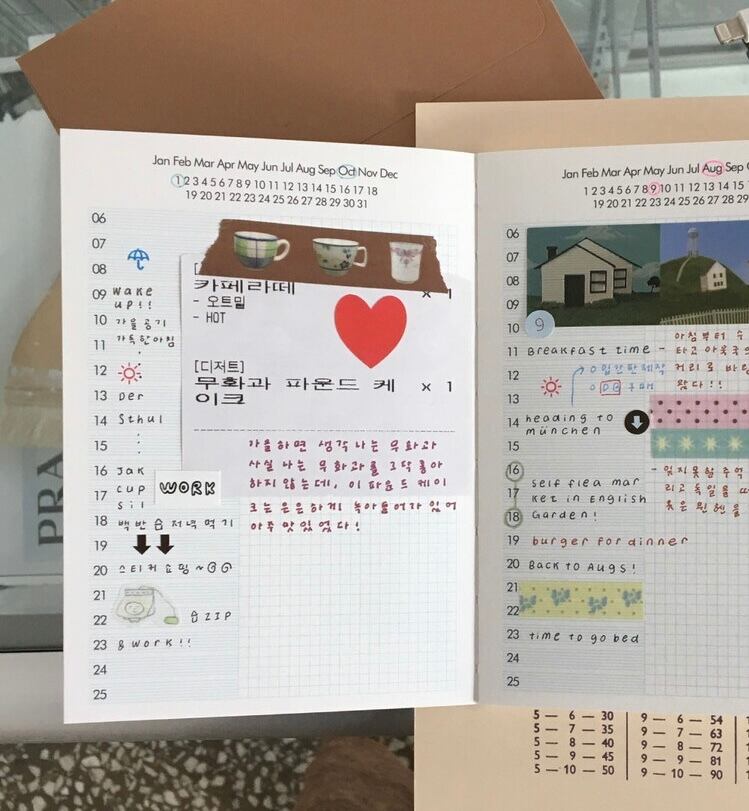 Jan Feb Mar Apr May Jun Jul Aug Sep Oct Nov Dec
1 2 3 4 5 6 7 8 9 10 11 12 13 14 15 16 17 18
19 20 21 22 23 24 25 26 27 28 29 30 31
06
07
08
09 wake
up!!
10 가을 공기
11 가득한 아침
12
13 Der
14 Sthul
15
16 Jak
17 cup
sil
WORK
18 백반 습 저녁 먹기
19
20 스티커 쇼핑~
21
22 습 ZIP
23 & work!!
24
25
[
카페라떼 x 1
- 오트밀
- HOT
[디저트]
무화과 파운드 케 x 1
이크
가을 하면 생각나는 무화과
사실 나는 무화과를 그닥 좋아
하지 않는데, 이 파운드 케이
크는 은은하게 녹아들어가 있어
아주 맛있었다!
Jan Feb Mar Apr May Jun Jul Aug Sep
1 2 3 4 5 6 7 8 9 10 11 12 13 14 15
19 20 21 22 23 24 25 26 27 28 29
06
07
08
09
10 9
11 Breakfast time - 아침부터 수
타고 아욱국
12 거리로 바
13 왔다!!
14 heading to
münchen
15
16
17 self flea mar
ket in English
18 Garden!
- 잊지 못할 추억
리고 독일을
19 burger for dinner
20 Back to Augs!
21
22
23 time to go bed
24
25
PRA
5 — 6 — 30
5 — 7 — 35
5 — 8 — 40
5 — 9 — 45
5 — 10 — 50
9 — 6 — 54
9 — 7 — 63
9 — 8 — 72
9 — 9 — 81
9 — 10 — 90